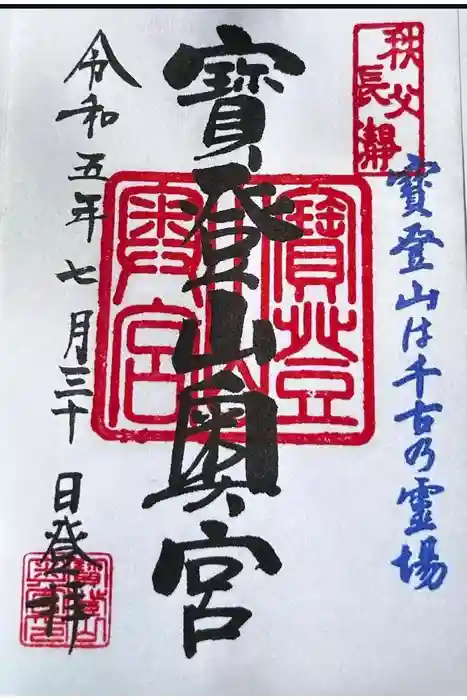 秩父
長瀞
寳登山は千古乃霊場
寳登山奥宮
寳登山
奥宮
令和五年七月三十日登拝